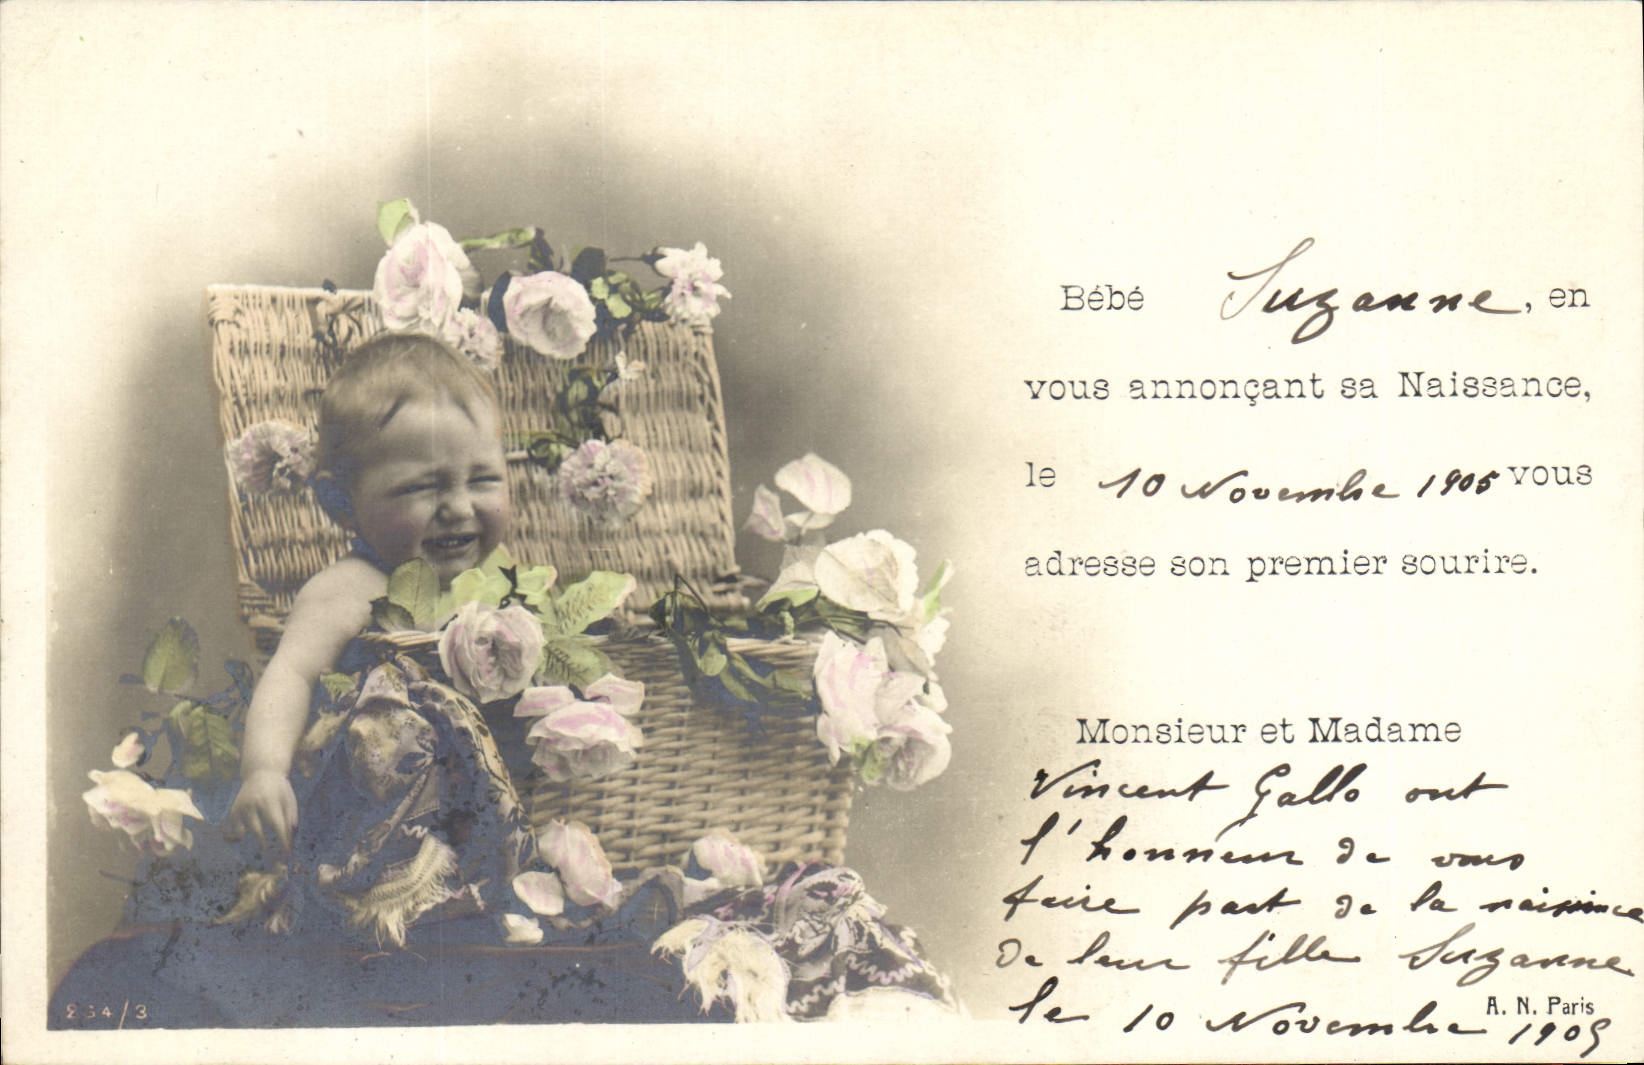 Bébé Suzanne, en
vous annonçant sa Naissance,
le 10 Novembre 1905 vous
adresse son premier sourire.
Monsieur et Madame
Vincent Gallo ont
l'honneur de vous
faire part de la naissance
de leur fille Suzanne
le 10 Novembre 1905
A. N. Paris
234/3